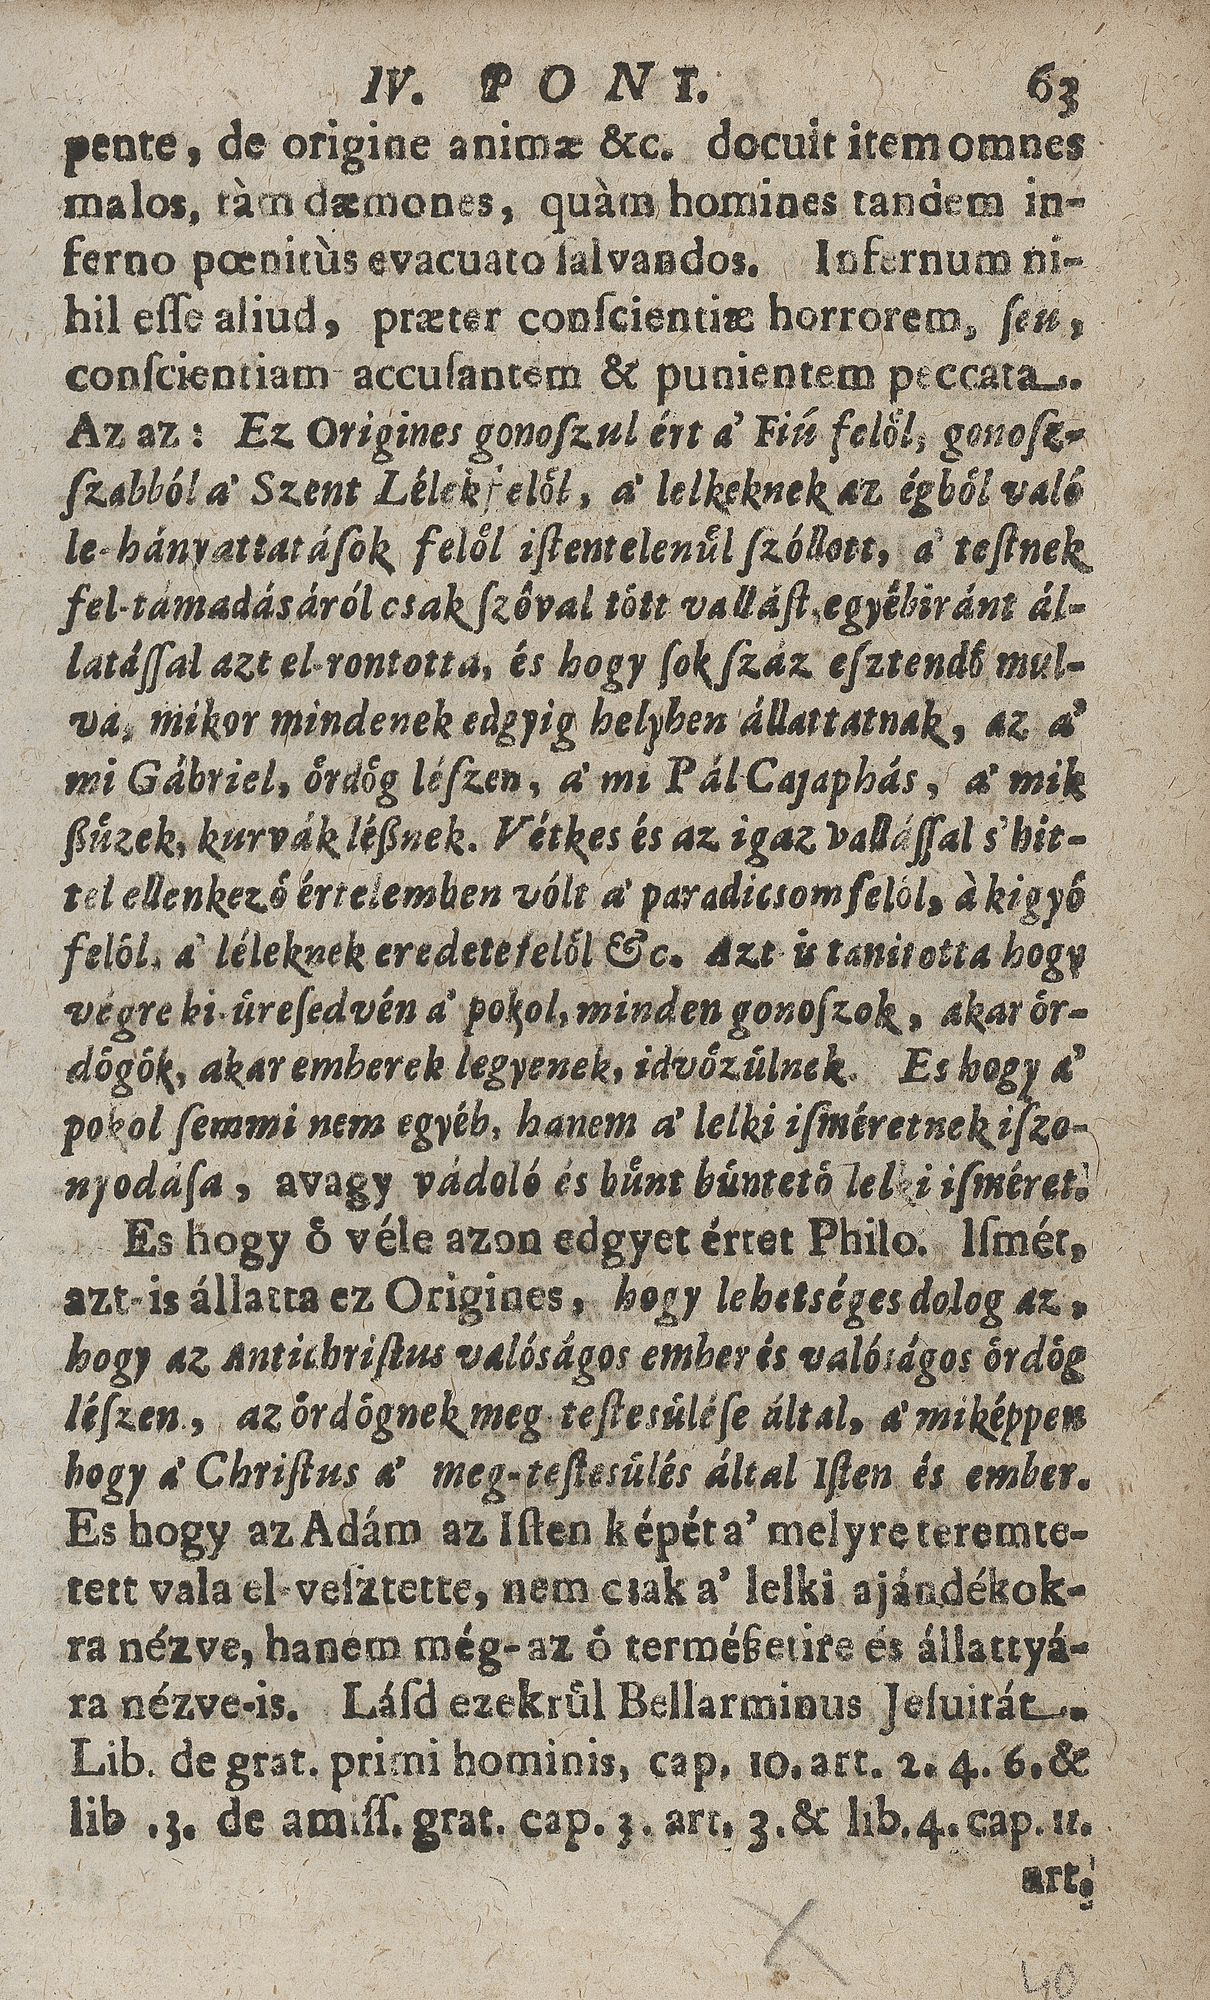 IV. PONT. 63
pente, de origine animæ &c. docuit item omnes
malos, tàm dæmones, quàm homines tandem in-
ferno pœnitùs evacuato ſalvandos. Infernum ni-
hil eſſe aliud, præter conſcientiæ horrorem, ſeu,
conſcientiam accuſantem & punientem peccata.
Az az: Ez Origines gonoſzul ért a' Fiú felöl, gonoſz-
ſzabból a' Szent Lélek felöl, a' lelkeknek az égböl való
le-hányattatáſok felöl iſtentelenül ſzóllott, a' teſtnek
fel-támadásáról csak ſzóval tött valláſt, egyébiránt ál-
latáſſal azt el-rontotta, és hogy ſok ſzáz eſztendő mul-
va, mikor mindenek edgyig helyben állattatnak, az a'
mi Gábriel, ördög léſzen, a' mi Pál Cajaphás, a' mik
ßüzek, kurvák léßnek. Vétkes és az igaz valláſſal s' hit-
tel ellenkező értelemben vólt a' paradicsom felöl, à kigyó
felöl, a' léleknek eredete felöl &c. Azt is tanitotta hogy
végre ki-üreſedvén a' pokol, minden gonoſzok, akar ör-
dögök, akar emberek legyenek, idvözülnek. Es hogy a'
pokol ſemmi nem egyéb, hanem a' lelki iſméretnek iſzo-
nyodáſa, avagy vádoló és bünt büntetö lelki iſméret.
Es hogy ö véle azon edgyet értet Philo. Iſmét,
azt-is állatta ez Origines, hogy lehetséges dolog az,
hogy az Antichriſtus valóságos ember és valóságos ördög
léſzen, az ördögnek meg-teſtesüléſe által, a' miképpen
hogy a' Chriſtus a' meg-teſtesülés által Iſten és ember.
Es hogy az Adám az Iſten képét a' melyre teremte-
tett vala el-veſztette, nem csak a' lelki ajándékok-
ra nézve, hanem még-az ö terméßetire és állattyá-
ra nézve-is. Láſd ezekrül Bellarminus Jeſuitát.
Lib. de grat. primi hominis, cap. 10. art. 2. 4. 6. &
lib .3. de amiſſ. grat. cap. 3. art. 3. & lib. 4. cap. 11.
art.
40